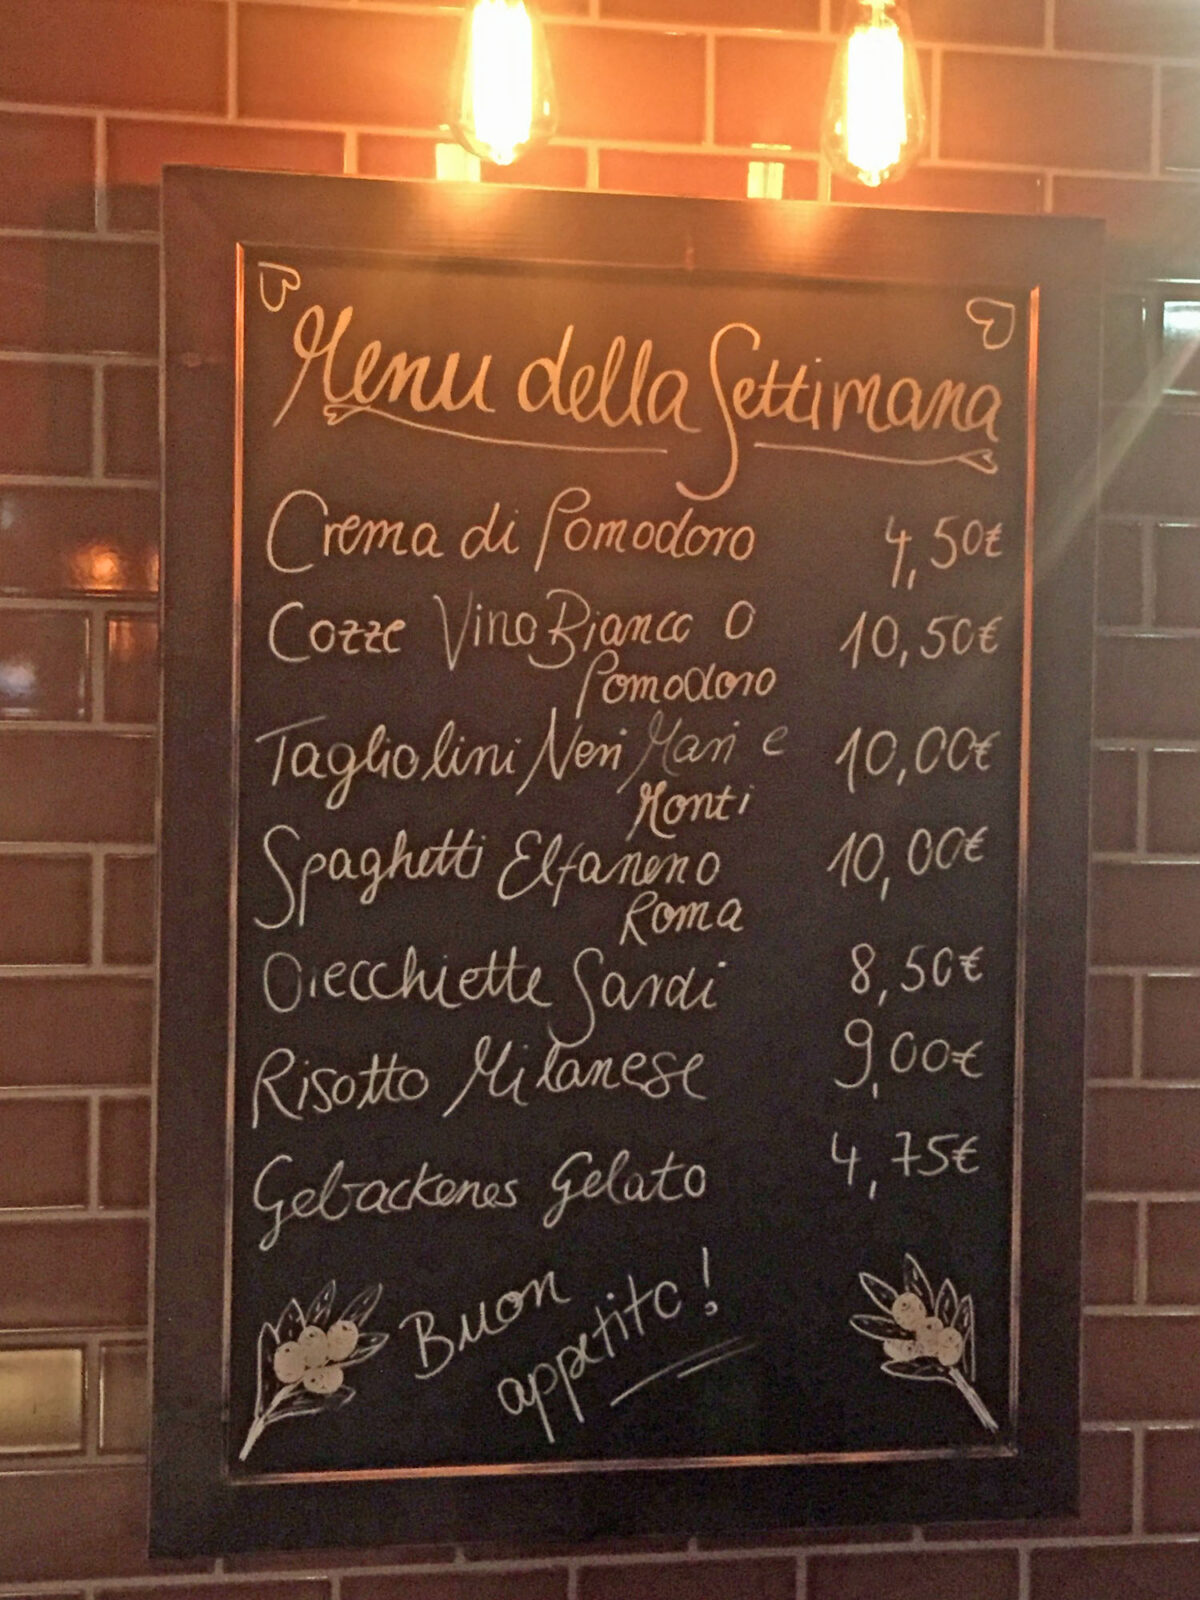 Menu della Settimana
Crema di Pomodoro 4,50€
Cozze Vino Bianco O 10,50€
Pomodoro
Tagliolini Neri Mari e 10,00€
Monti
Spaghetti Elfaneno 10,00€
Roma
Oiecchiette Sardi 8,50€
Risotto Milanese 9,00€
Gebackenes Gelato 4,75€
Buon
appetito!